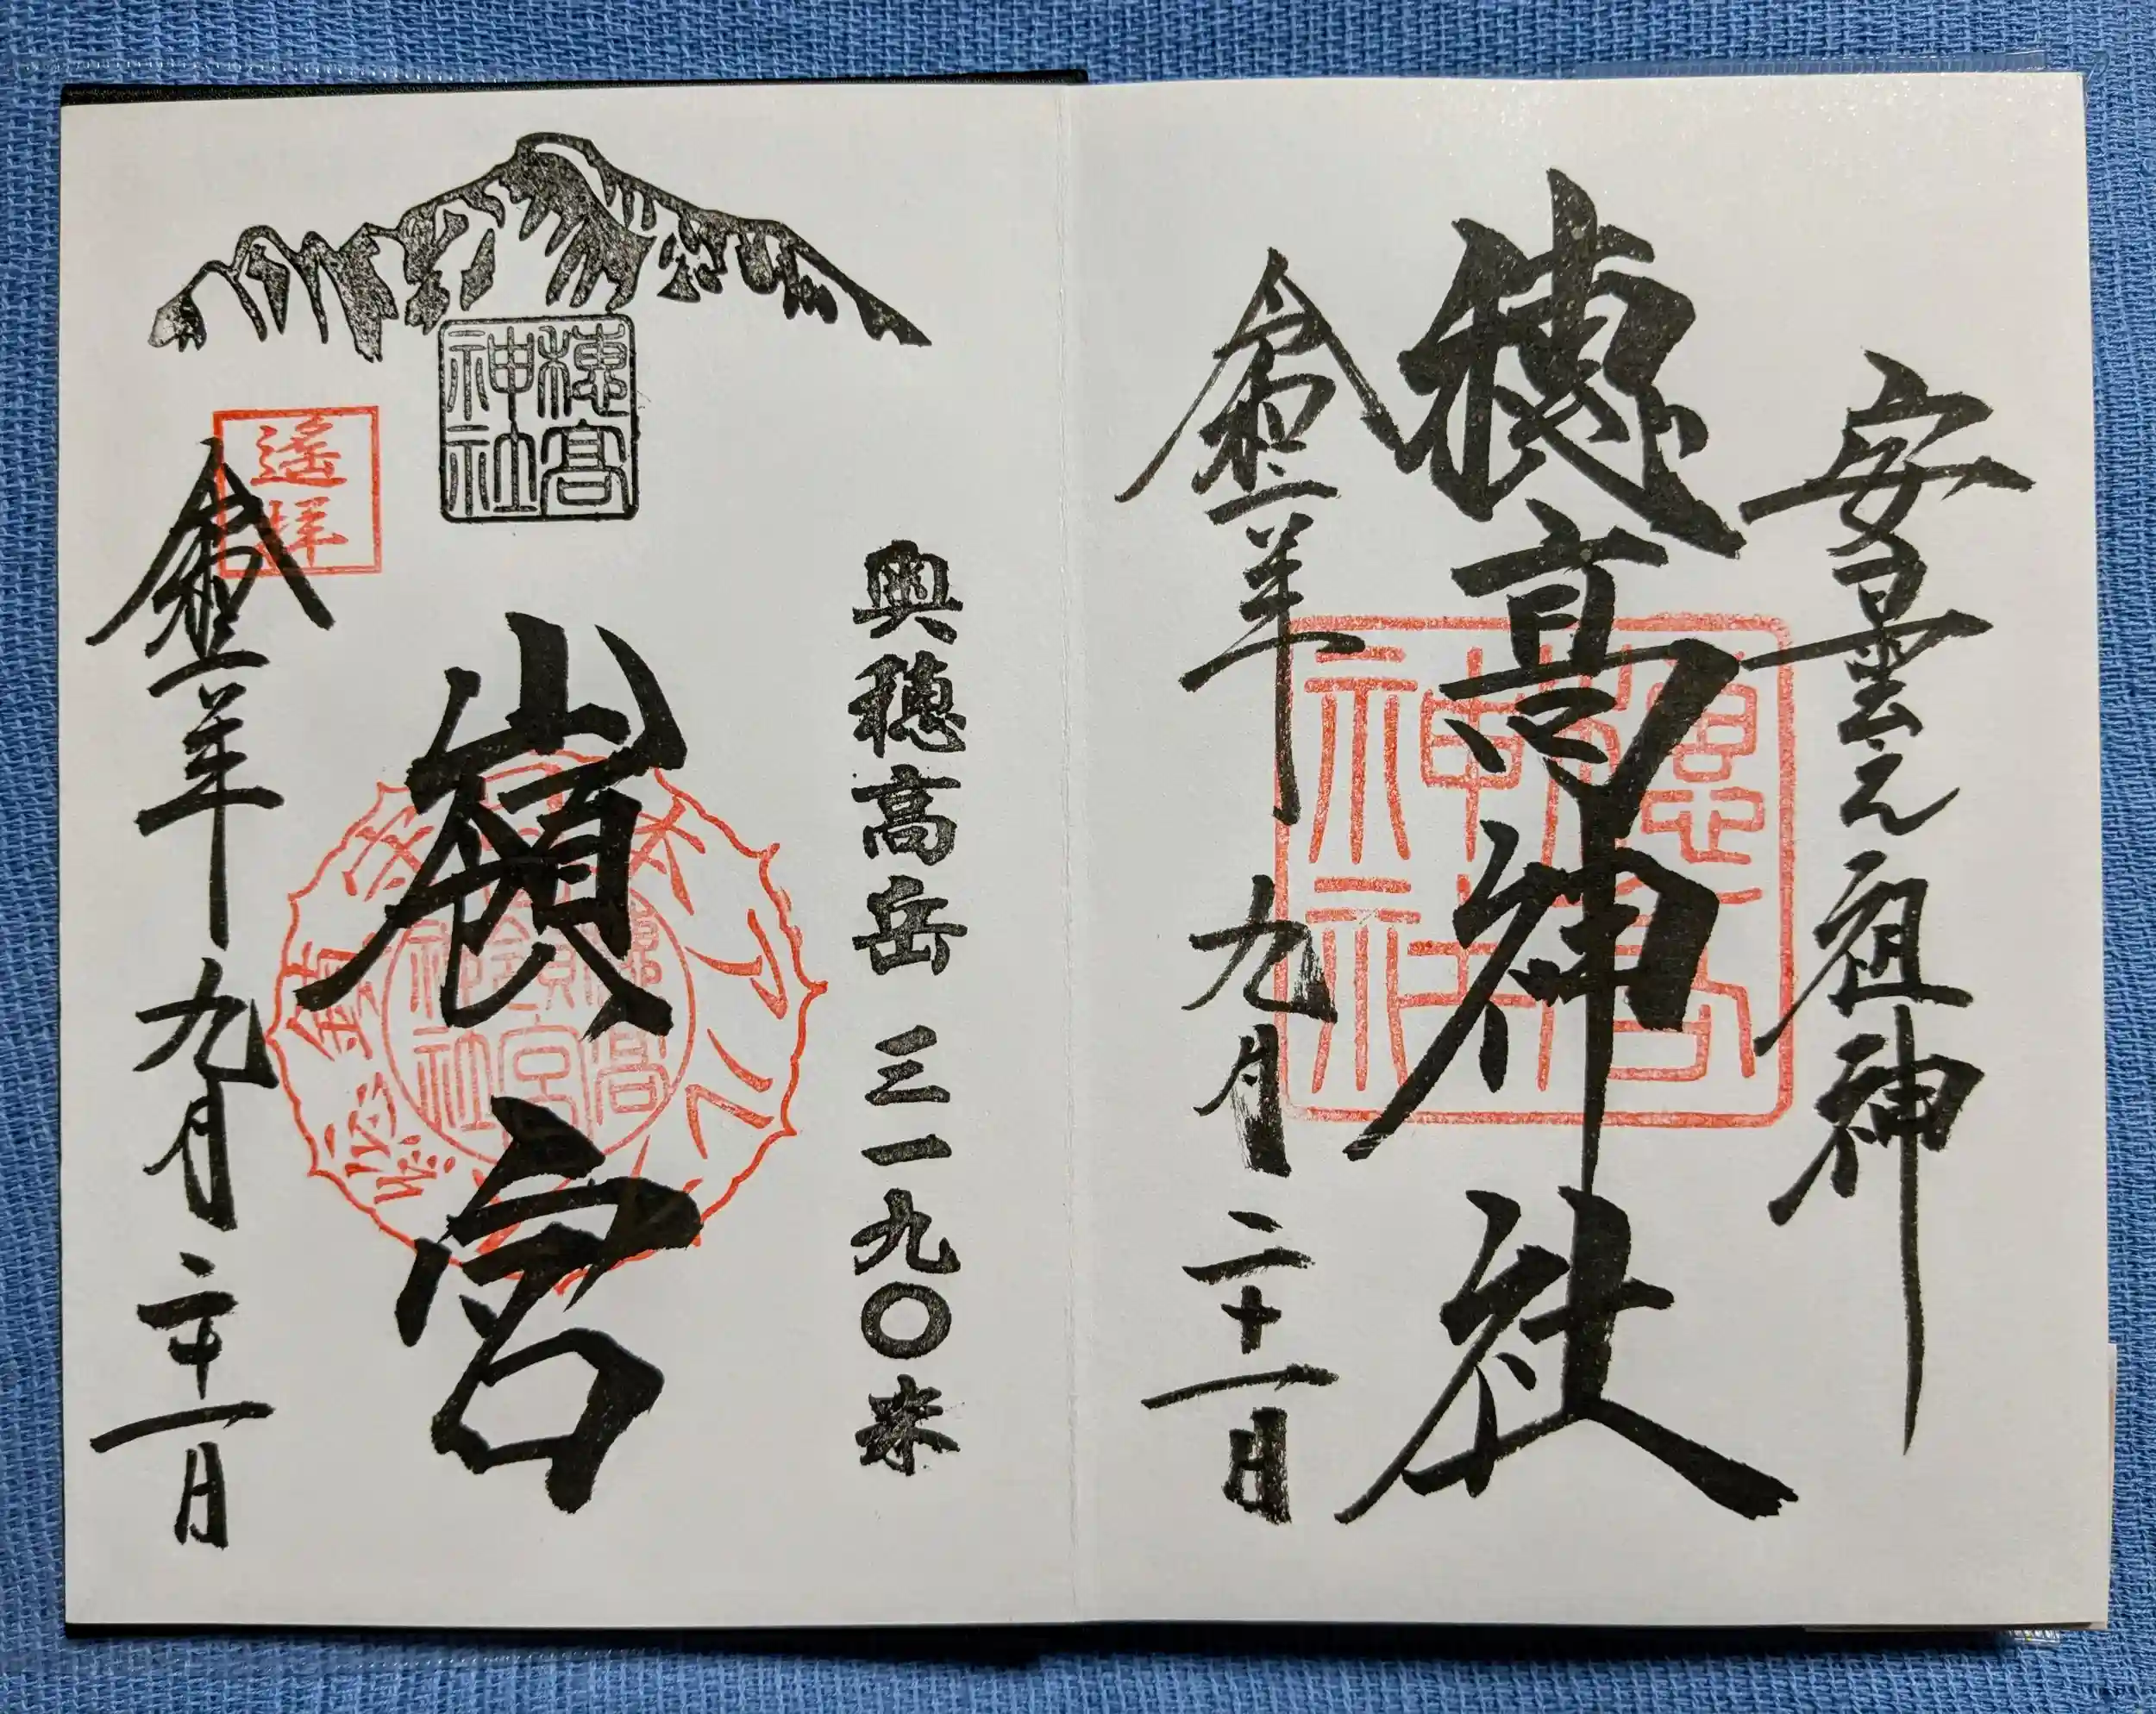 安曇元祖神
穂高神社
穂高神社
令和二年九月二十一日
奥穂高岳 三一九〇米
穂高神社
嶺宮
穂高嶺宮神社
遙拝
令和二年九月二十一日